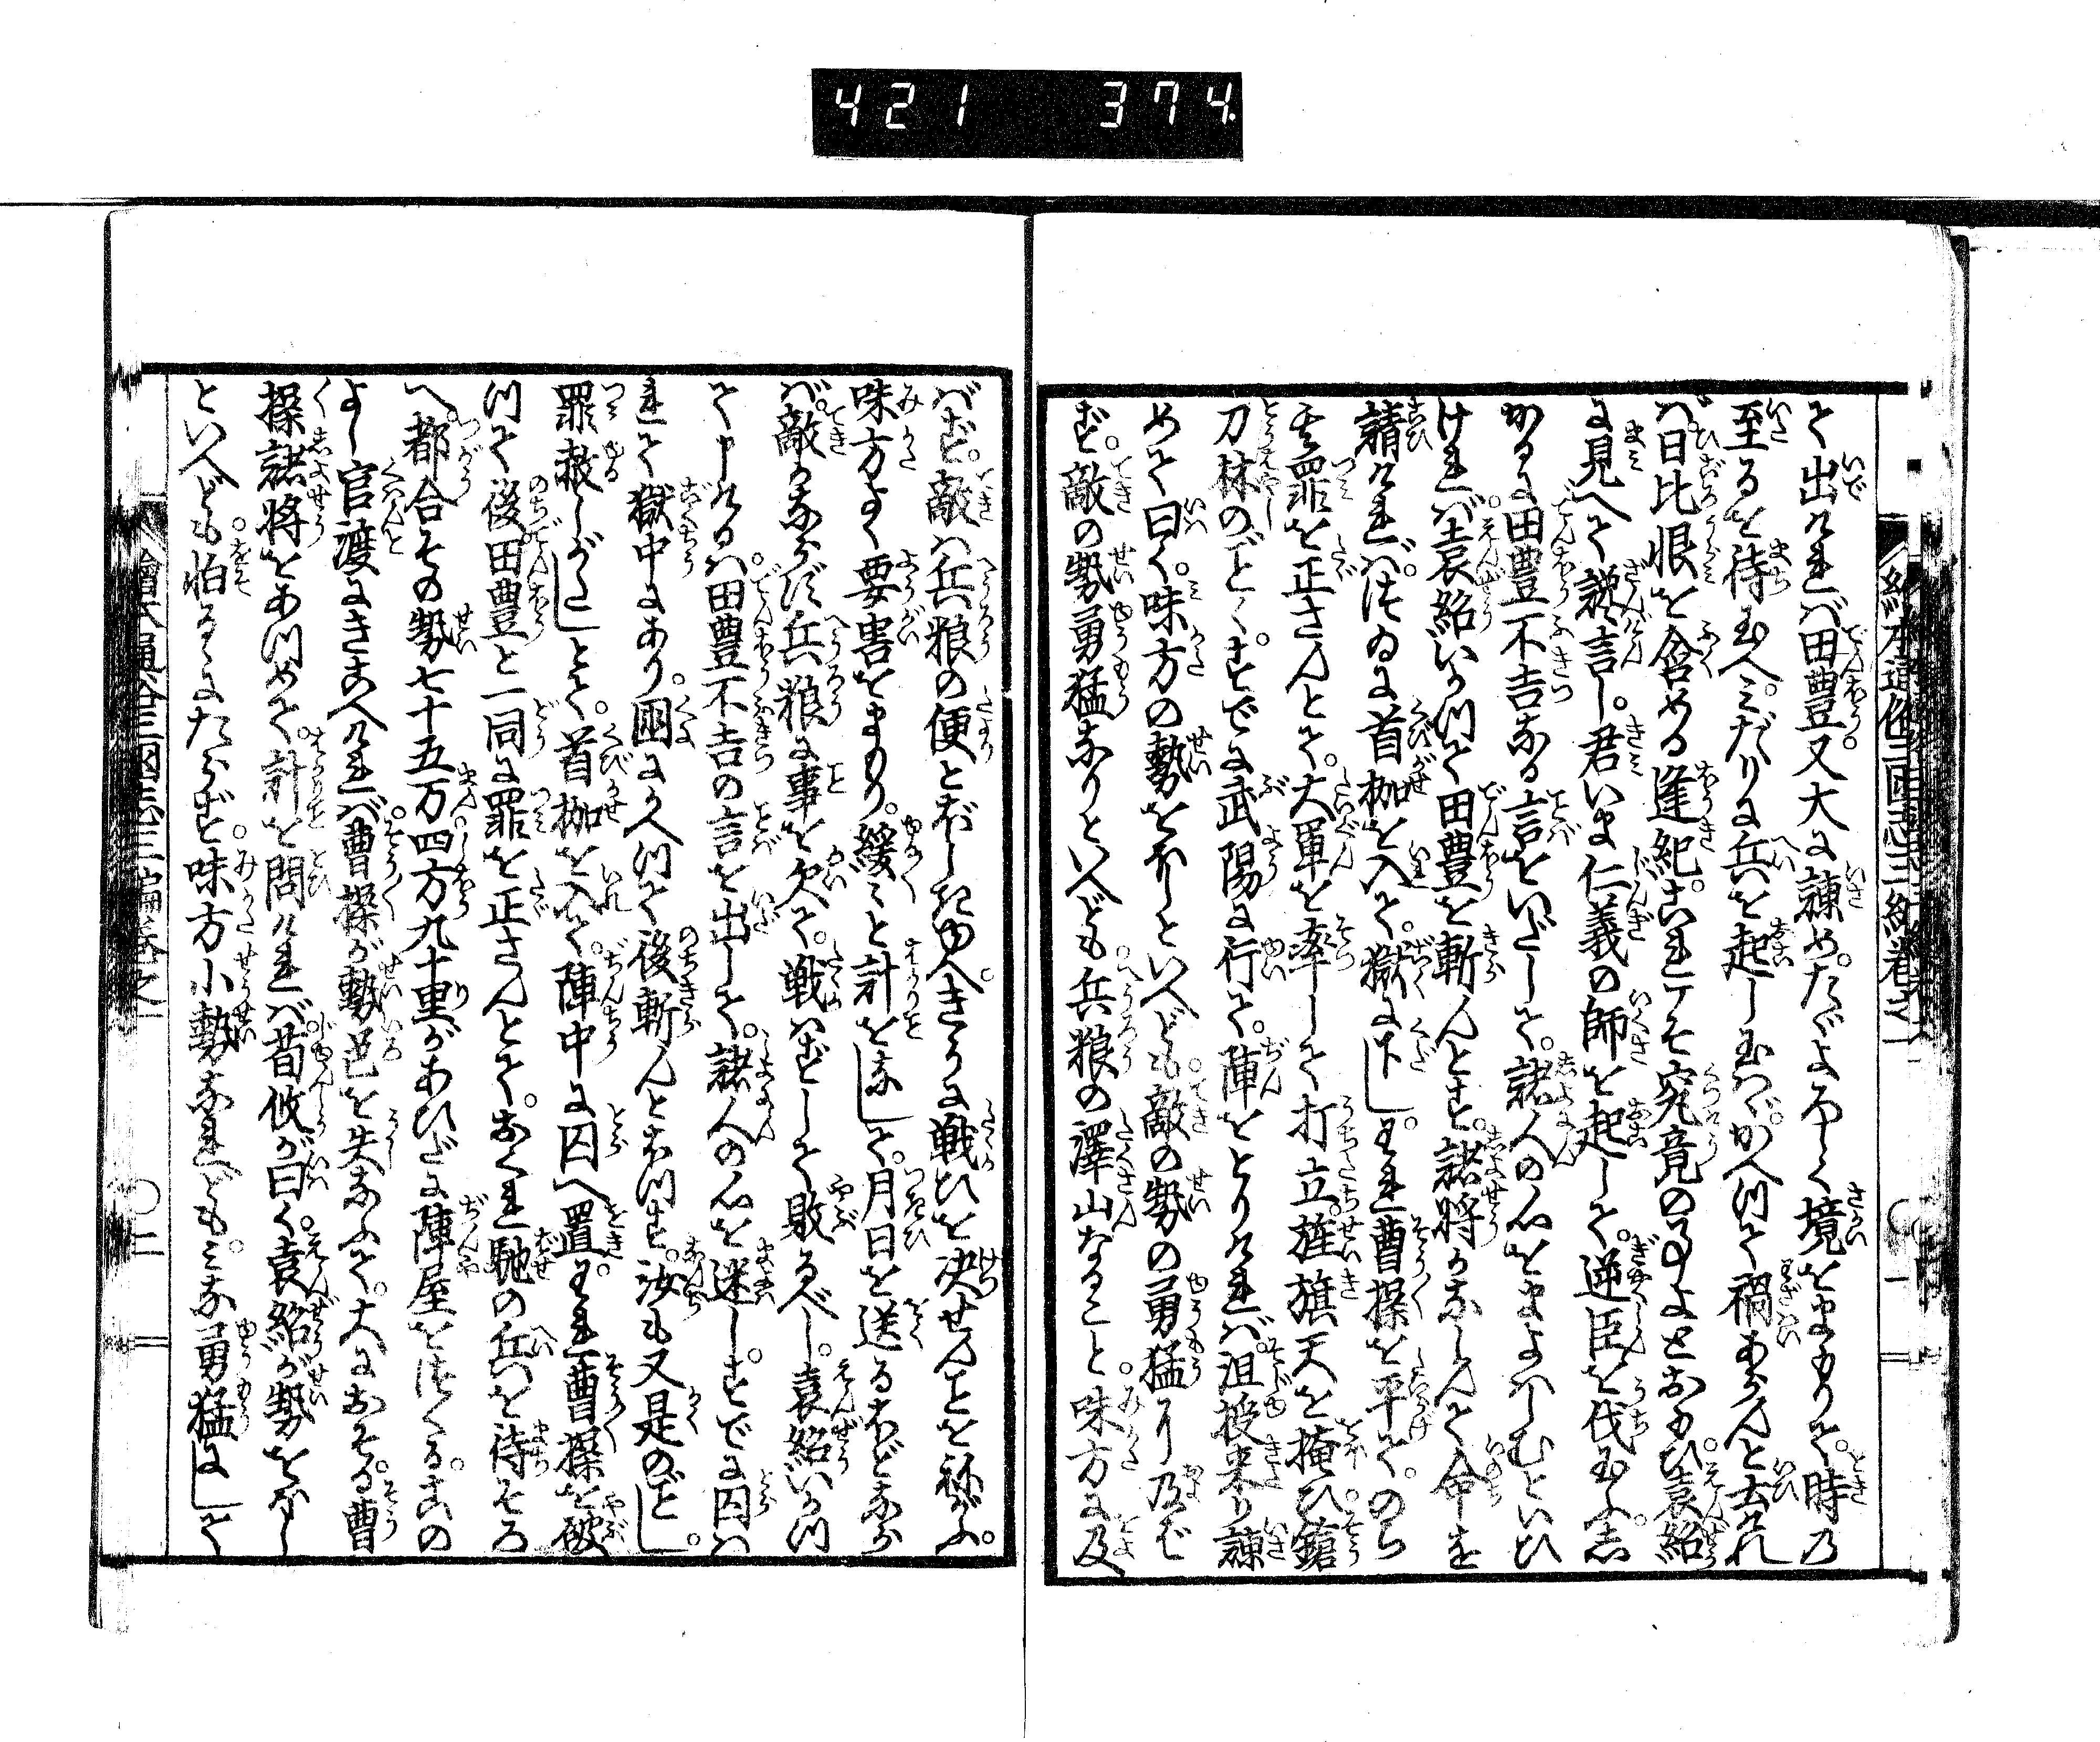 421 374
繪本通俗三國志三編卷之一
て出ければ田豊又大に諫めたゞよろしく境をまもりて時の
至るを待玉へみだりに兵を起し玉はゞかへつて禍あらんと云けれ
ば日比恨を含める逢紀これこそ究竟の事よとおもひ袁紹
に見へて讒言し君いま仁義の師を起して逆臣を伐玉ふ志
かるに田豊不吉なる言をいだして諸人の心をまよはしむといひ
ければ袁紹いかつて田豊を斬んとす諸将かなしんで命を
請ければつゐに首枷を入て獄に下しわれ曹操を平てのち
其罪を正さんとて大軍を率して打立旌旗天を掩ひ鎗
刀林のごとくすでに武陽に行て陣をとりければ沮授来り諫
めて曰く味方の勢をほしといへども敵の勢の勇猛に及ば
ず敵の勢勇猛なりといへども兵粮の澤山なること味方に及
ばず敵は兵粮の便とぼしきゆへきうに戦ひを决せんとを祢がふ
味方よく要害をまもり緩々と計をなして月日を送るほどなら
ば敵かならず兵粮に事を欠て戦はずして敗るべし袁紹いかつ
て申けるは田豊不吉の言を出して諸人の心を迷しすでに囚は
れて獄中にあり囬にかへつて後斬んとほつす汝も又是のごとし
罪赦しがたしとて首枷を入て陣中に囚へ置われ曹操を破
つて後田豊と一同に罪を正さんとておくれ馳の兵を待そろ
へ都合その勢七十五万四方九十里があひだに陣屋をつくるこの
よし官渡にきこへければ曹操が勢色を失なふて大におそる曹
操諸将をあつめて計を問ければ荀攸が曰く袁紹が勢をほし
といへども怕るゝにたらず味方小勢なれどもみな勇猛にして
繪本通俗三國志三編卷之一 〇二